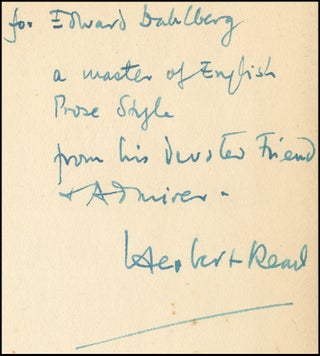 for Edward Dahlberg
a master of English
Prose Style
from his devoted Friend
& Admirer -
Herbert Read